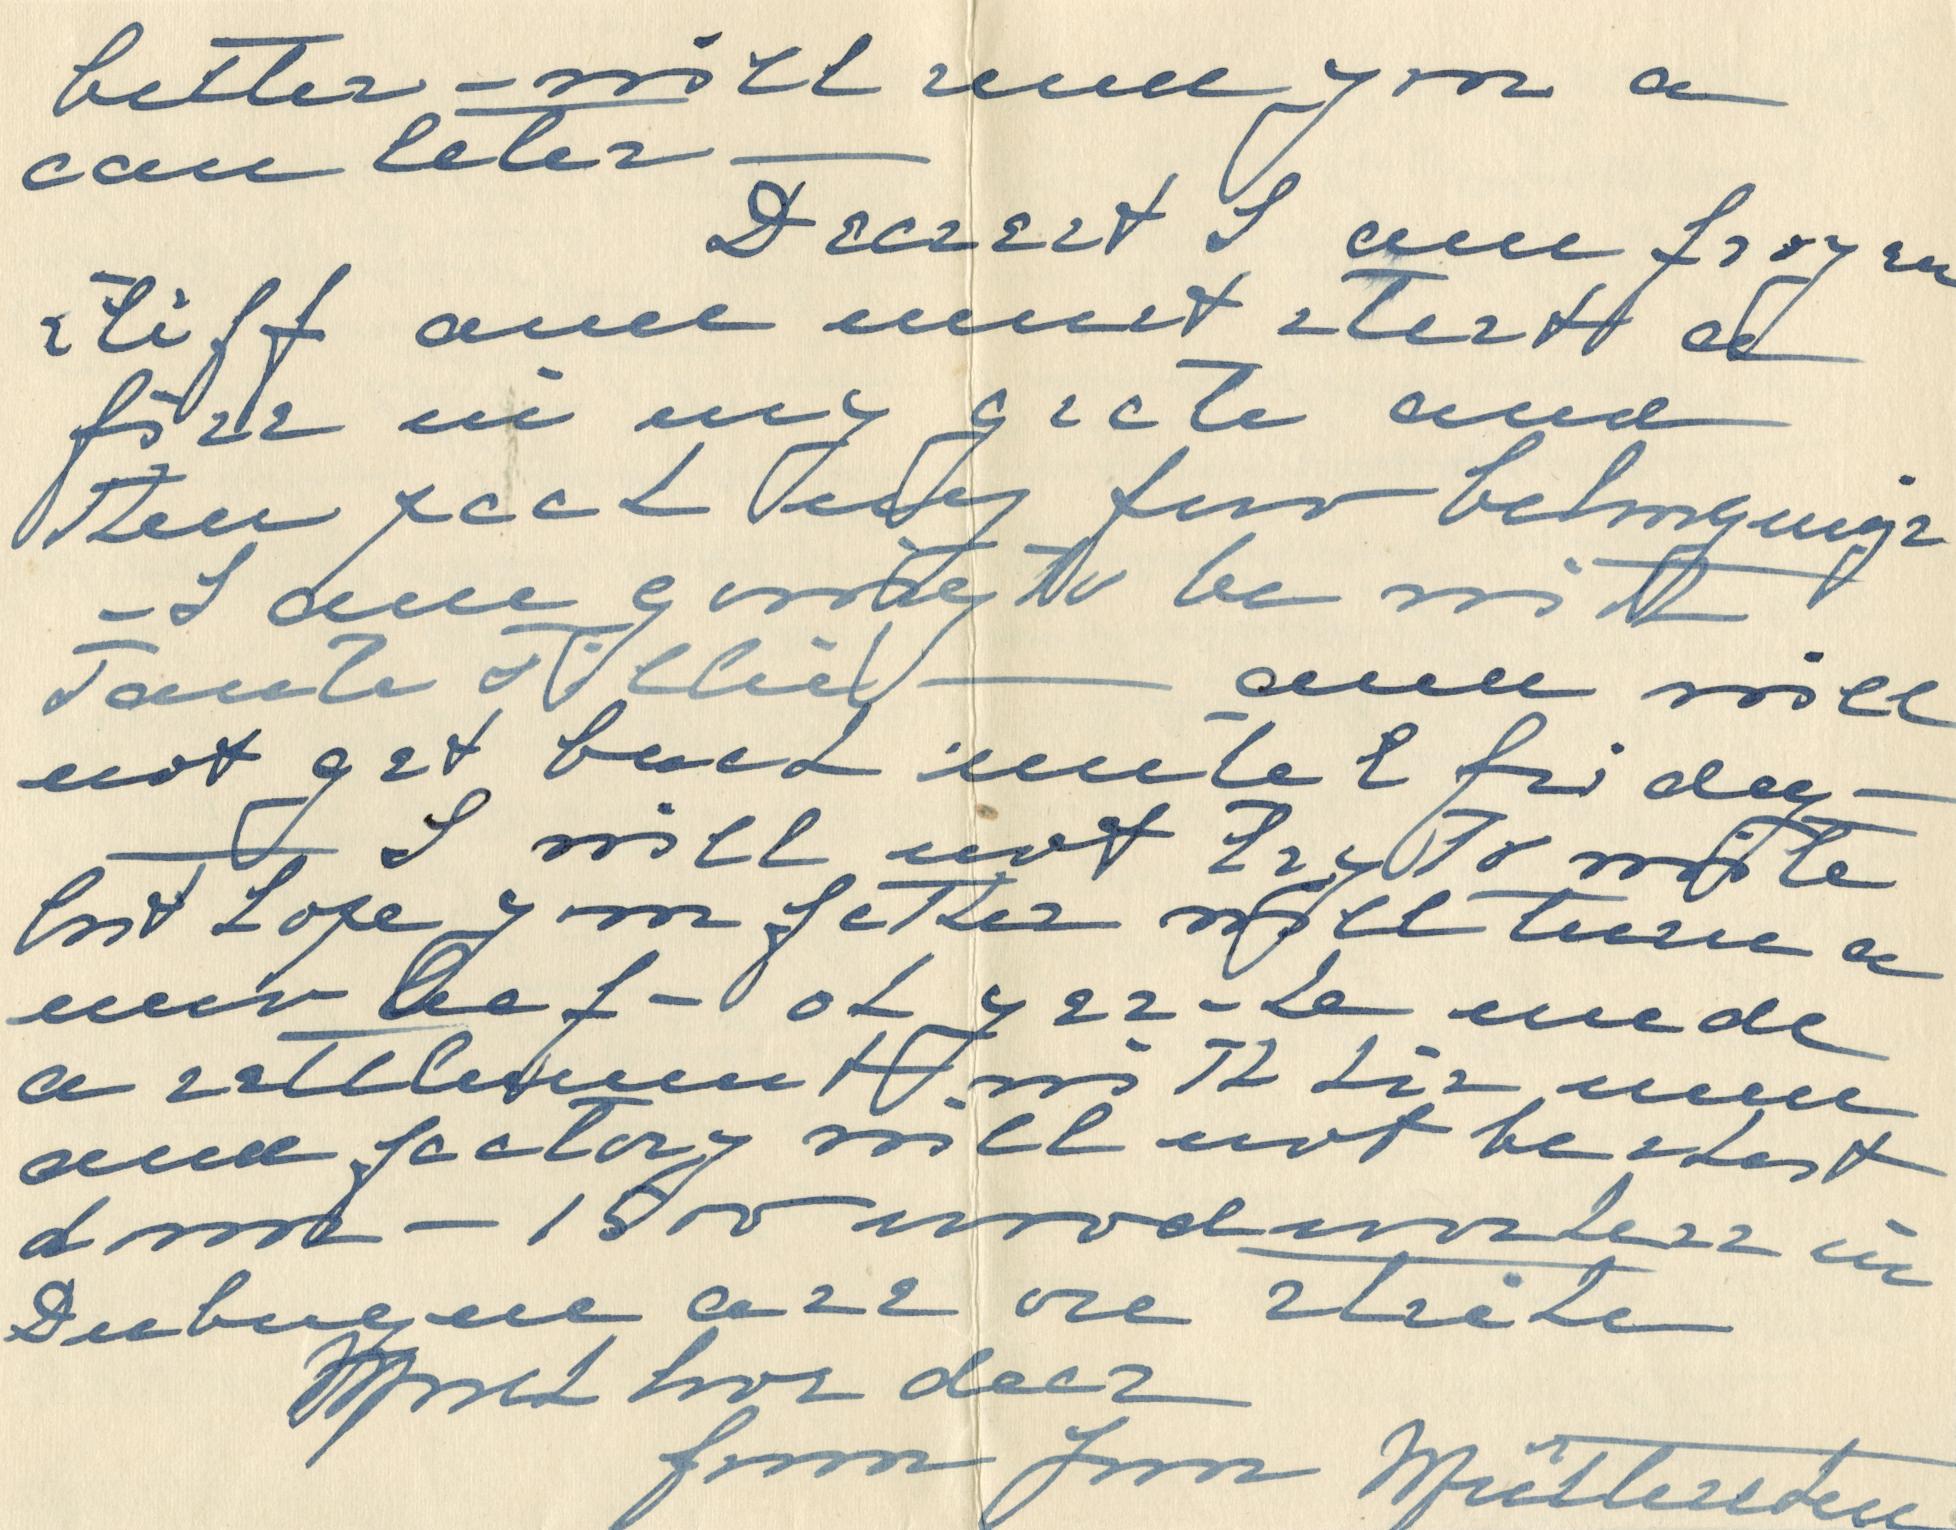 better - will send you a
can later —
Dearest I am frozen
stiff and must start a
fire in my grate and
then pack my few belongings
- I am going to be with
Tante Tillie — and will
not get back until friday —
— I will not try to write
but hope your father will turn a
new leaf - oh yes - he made
a settlement with his men
and factory will not be shut
down - 1500 wood workers in
Dubuque are on strike
Much love dear
from your Mütterchen